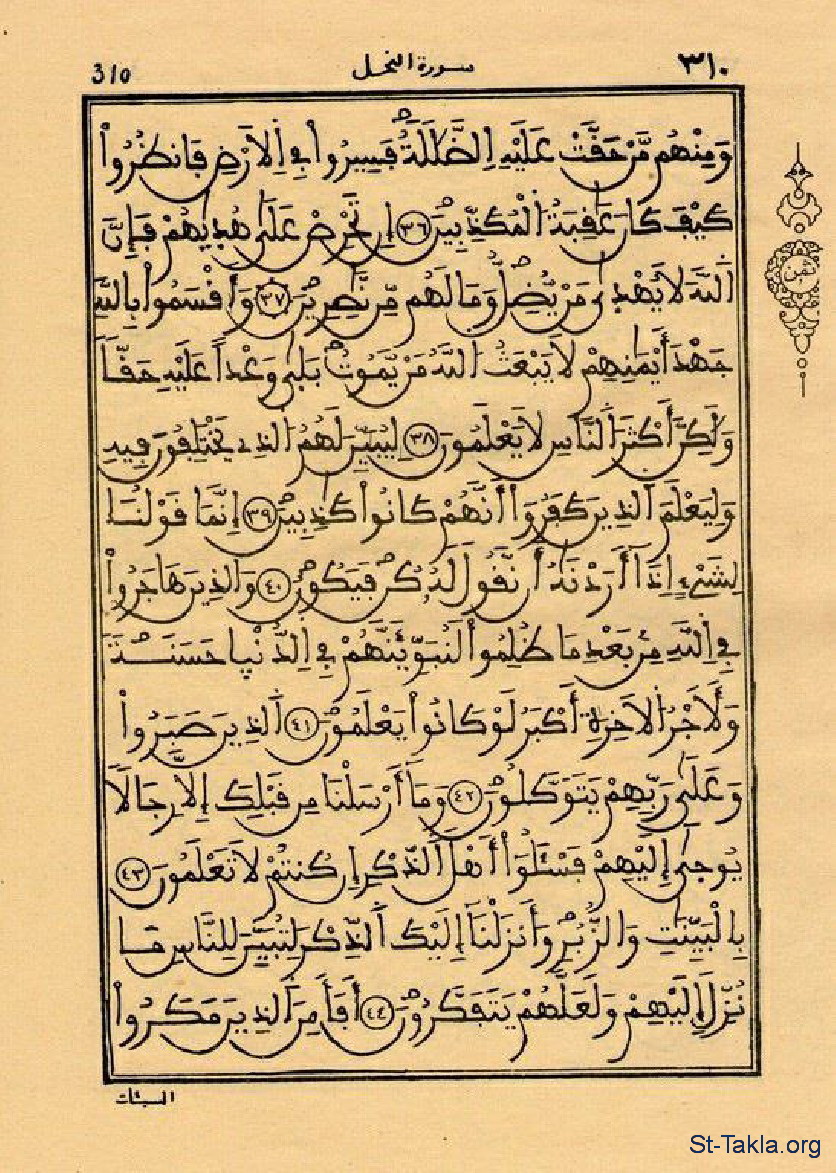 310 سورة النحل ٣١٠
وَمِنْهُم مَّنْ حَقَّتْ عَلَيْهِ اِ۬لضَّلَٰلَةُۖ فَسِيرُواْ فِے اِ۬لَارْضِ فَانظُرُواْ
كَيْفَ كَانَ عَٰقِبَةُ اُ۬لْمُكَذِّبِينَۖ ٣٦ إِن تَحْرِصْ عَلَىٰ هُدٜيٰهُمْ فَإِنَّ
ثمن
اَ۬للَّهَ لَا يُهْدَىٰ مَنْ يُّضِلُّۖ وَمَا لَهُم مِّن نَّٰصِرِينَۖ ٣٧ وَأَقْسَمُواْ بِاللَّهِ
جَهْدَ أَيْمَٰنِهِمْ لَا يَبْعَثُ اُ۬للَّهُ مَنْ يَّمُوتُۖ بَلَىٰ وَعْداً عَلَيْهِ حَقّاٗ
وَلَٰكِنَّ أَكْثَرَ اَ۬لنَّاسِ لَا يَعْلَمُونَ ٣٨ لِيُبَيِّنَ لَهُمُ اُ۬لذِے يَخْتَلِفُونَ فِيهِ
وَلِيَعْلَمَ اَ۬لذِينَ كَفَرُواْ أَنَّهُمْ كَانُواْ كَٰذِبِينَۖ ٣٩ إِنَّمَا قَوْلُنَا
لِشَےْءٍ اِذَا أَرَدْنَٰهُ أَن نَّقُولَ لَهُۥ كُن فَيَكُونُۖ ٤٠ وَالذِينَ هَاجَرُواْ
فِے اِ۬للَّهِ مِنۢ بَعْدِ مَا ظُلِمُواْ لَنُبَوِّئَنَّهُمْ فِے اِ۬لدُّنْيٜا حَسَنَةٗ
وَلَأَجْرُ اُ۬لَاخِرَةِ أَكْبَرُ لَوْ كَانُواْ يَعْلَمُونَۖ ٤١ اَ۬لذِينَ صَبَرُواْ
وَعَلَىٰ رَبِّهِمْ يَتَوَكَّلُونَۖ ٤٢ وَمَا أَرْسَلْنَا مِن قَبْلِكَ إِلَّا رِجَالاٗ
يُوحَىٰ إِلَيْهِمْ فَسْـَٔلُواْ أَهْلَ اَ۬لذِّكْرِ إِن كُنتُمْ لَا تَعْلَمُونَ ٤٣
بِالْبَيِّنَٰتِ وَالزُّبُرِۖ وَأَنزَلْنَا إِلَيْكَ اَ۬لذِّكْرَ لِتُبَيِّنَ لِلنَّاسِ مَا
نُزِّلَ إِلَيْهِمْ وَلَعَلَّهُمْ يَتَفَكَّرُونَۖ ٤٤ أَفَأَمِنَ اَ۬لذِينَ مَكَرُواْ
السيئات
St-Takla.org